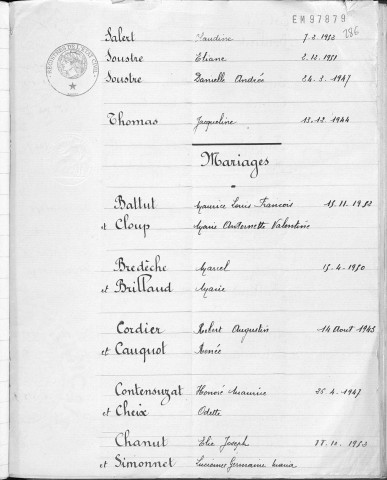 EM97879
286
REGISTRES DE L'ETAT CIVIL
Salert Claudine 7.2.1952
Soustre Etiane 2.12.1951
Soustre Danielle Andrée 24.3.1947
Thomas Jacqueline 13.12.1944
Mariages
Battut Maurice Louis Francois 15.11.1952
et Cloup Marie Antoinette Valentine
Bredèche Marcel 15.4.1950
et Brillaud Marie
Cordier Robert Augustin 14 Aout 1945
et Cauquot Renée
Contensuzat Honoré Maurice 26.4.1947
et Cheix Odette
Chanut Elie Joseph 1953
et Simonnet Lucienne Germaine Maria